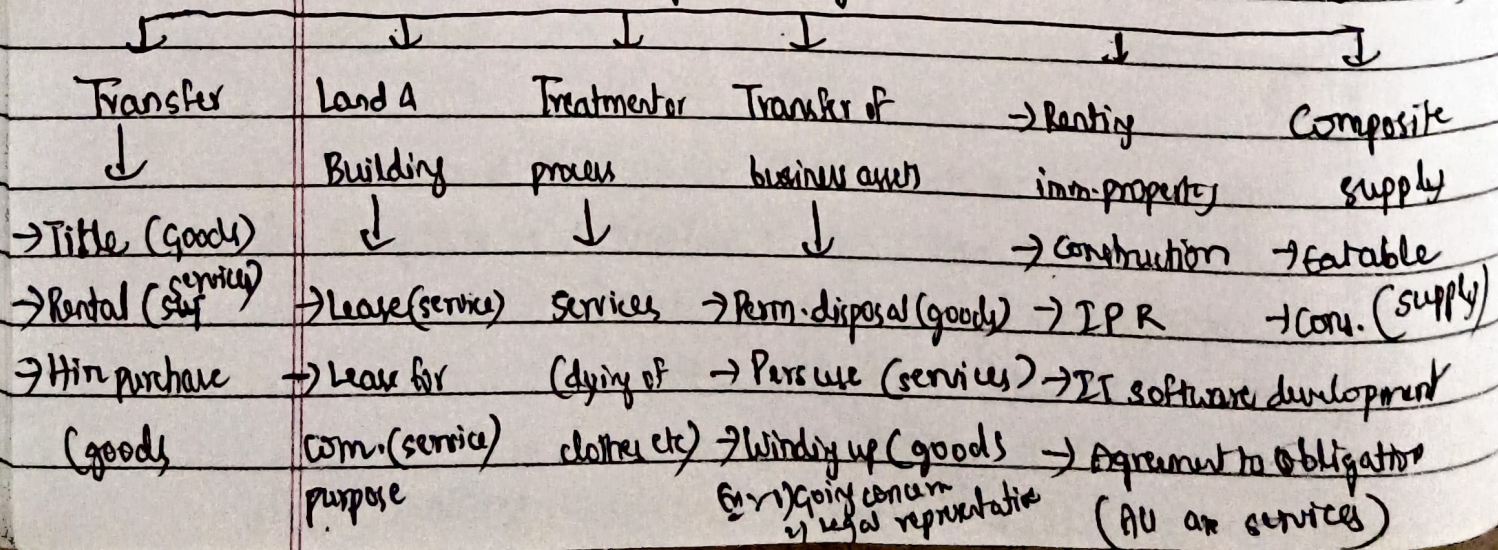 Transfer
↓
→ Title (Goods)
→ Rental (services)
→ Hire purchase
(goods
Land &
Building
↓
→ Lease (service)
→ Lease for
com. (service)
purpose
Treatment or
process
↓
services
(dying of
clothes etc)
Transfer of
business assets
↓
→ Perm. disposal (goods)
→ Pers use (services)
→ Winding up (goods
1) Going concern
2) Legal representative
→ Renting
imm. property
→ Construction
→ IPR
→ IT software development
→ Agreement to Obligation
(All are services)
Composite
supply
→ Eatable
→ Cons. (supply)